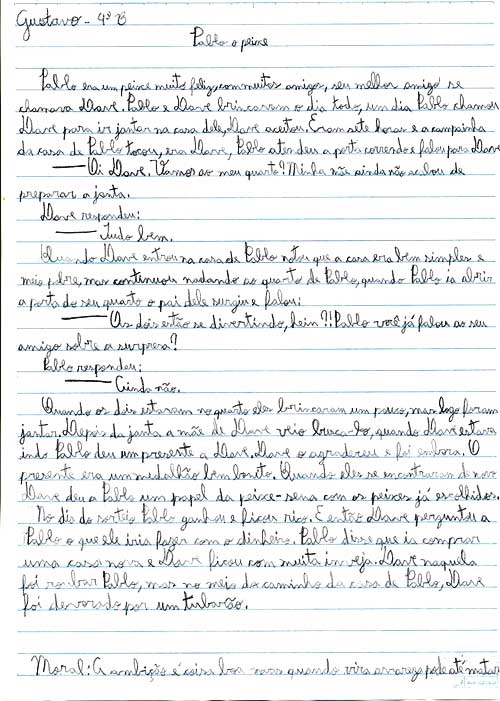 Gustavo - 4º B
Pablo o peixe
Pablo era um peixe muito feliz, com muitos amigos, seu melhor amigo se
chamava Dave. Pablo e Dave brincavam o dia todo, um dia Pablo chamou
Dave para ir jantar na casa dele, Dave aceitou. Eram sete horas e a campainha
da casa de Pablo tocou, era Dave, Pablo atendeu a porta correndo e falou para Dave
— Oi Dave. Vamos ao meu quarto? Minha mãe ainda não acabou de
preparar a janta.
Dave respondeu:
— Tudo bem.
Quando Dave entrou na casa de Pablo notou que a casa era bem simples e
meio pobre, mas continuou nadando ao quarto de Pablo, quando Pablo ia abrir
a porta do seu quarto o pai dele surgiu e falou:
— Os dois estão se divertindo, hein?!! Pablo você já falou ao seu
amigo sobre a surpresa?
Pablo respondeu:
— Ainda não.
Quando os dois estavam no quarto eles brincaram um pouco, mas logo foram
jantar. Depois da janta a mãe de Dave veio busca-lo, quando Dave estava
indo Pablo deu um presente a Dave. Dave o agradeceu e foi embora. O
presente era um medalhão bem bonito. Quando eles se encontraram de novo
Dave deu a Pablo um papel da peixe-sena com os peixes já escolhidos.
No dia do sorteio Pablo ganhou e ficou rico. E então Dave perguntou a
Pablo o que ele iria fazer com o dinheiro. Pablo disse que ia comprar
uma casa nova e Dave ficou com muita inveja. Dave naquela
foi roubar Pablo, mas no meio do caminho da casa de Pablo, Dave
foi devorado por um tubarão.
Moral: A ambição é coisa boa mas quando vira avareza pode até matar